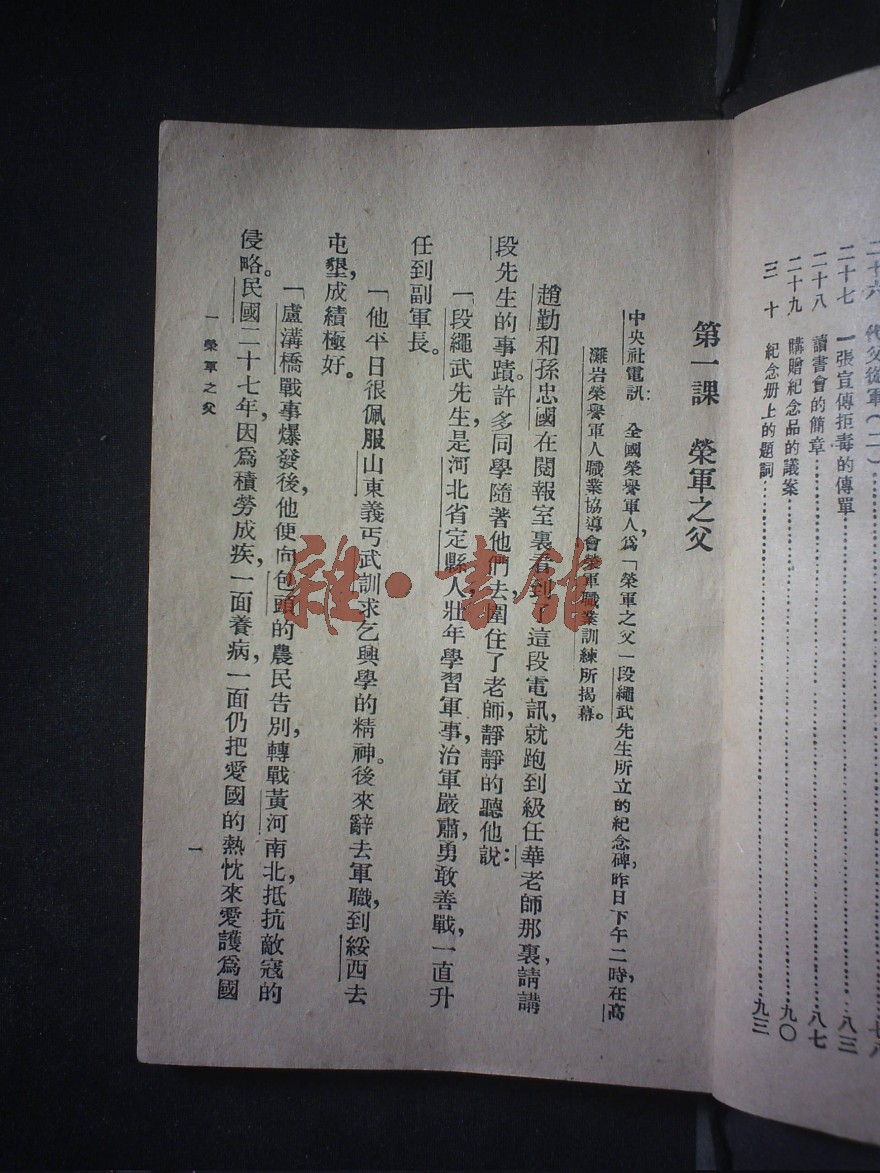 二十六　代父從軍(二)……七八
二十七　一張宣傳拒毒的傳單……八三
二十八　讀書會的簡章……八七
二十九　購贈紀念品的議案……九〇
三十　紀念册上的題詞……九三
第一課　榮軍之父
中央社電訊：全國榮譽軍人，爲「榮軍之父」段繩武先生所立的紀念碑，昨日下午二時，在高
灘岩榮譽軍人職業協導會榮軍職業訓練所揭幕。
趙勤和孫忠國在閱報室裏看到了這段電訊，就跑到級任華老師那裏，請講
段先生的事蹟。許多同學隨著他們去，圍住了老師，靜靜的聽他說：
「段繩武先生，是河北省定縣人，壯年學習軍事，治軍嚴肅，勇敢善戰，一直升
任到副軍長。
「他平日很佩服山東義丐武訓求乞興學的精神。後來辭去軍職，到綏西去
屯墾，成績極好。
「盧溝橋戰事爆發後，他便向包頭的農民告別，轉戰黃河南北，抵抗敵寇的
侵略。民國二十七年，因爲積勞成疾，一面養病，一面仍把愛國的熱忱來愛護爲國
一　榮軍之父
一
雜·書館